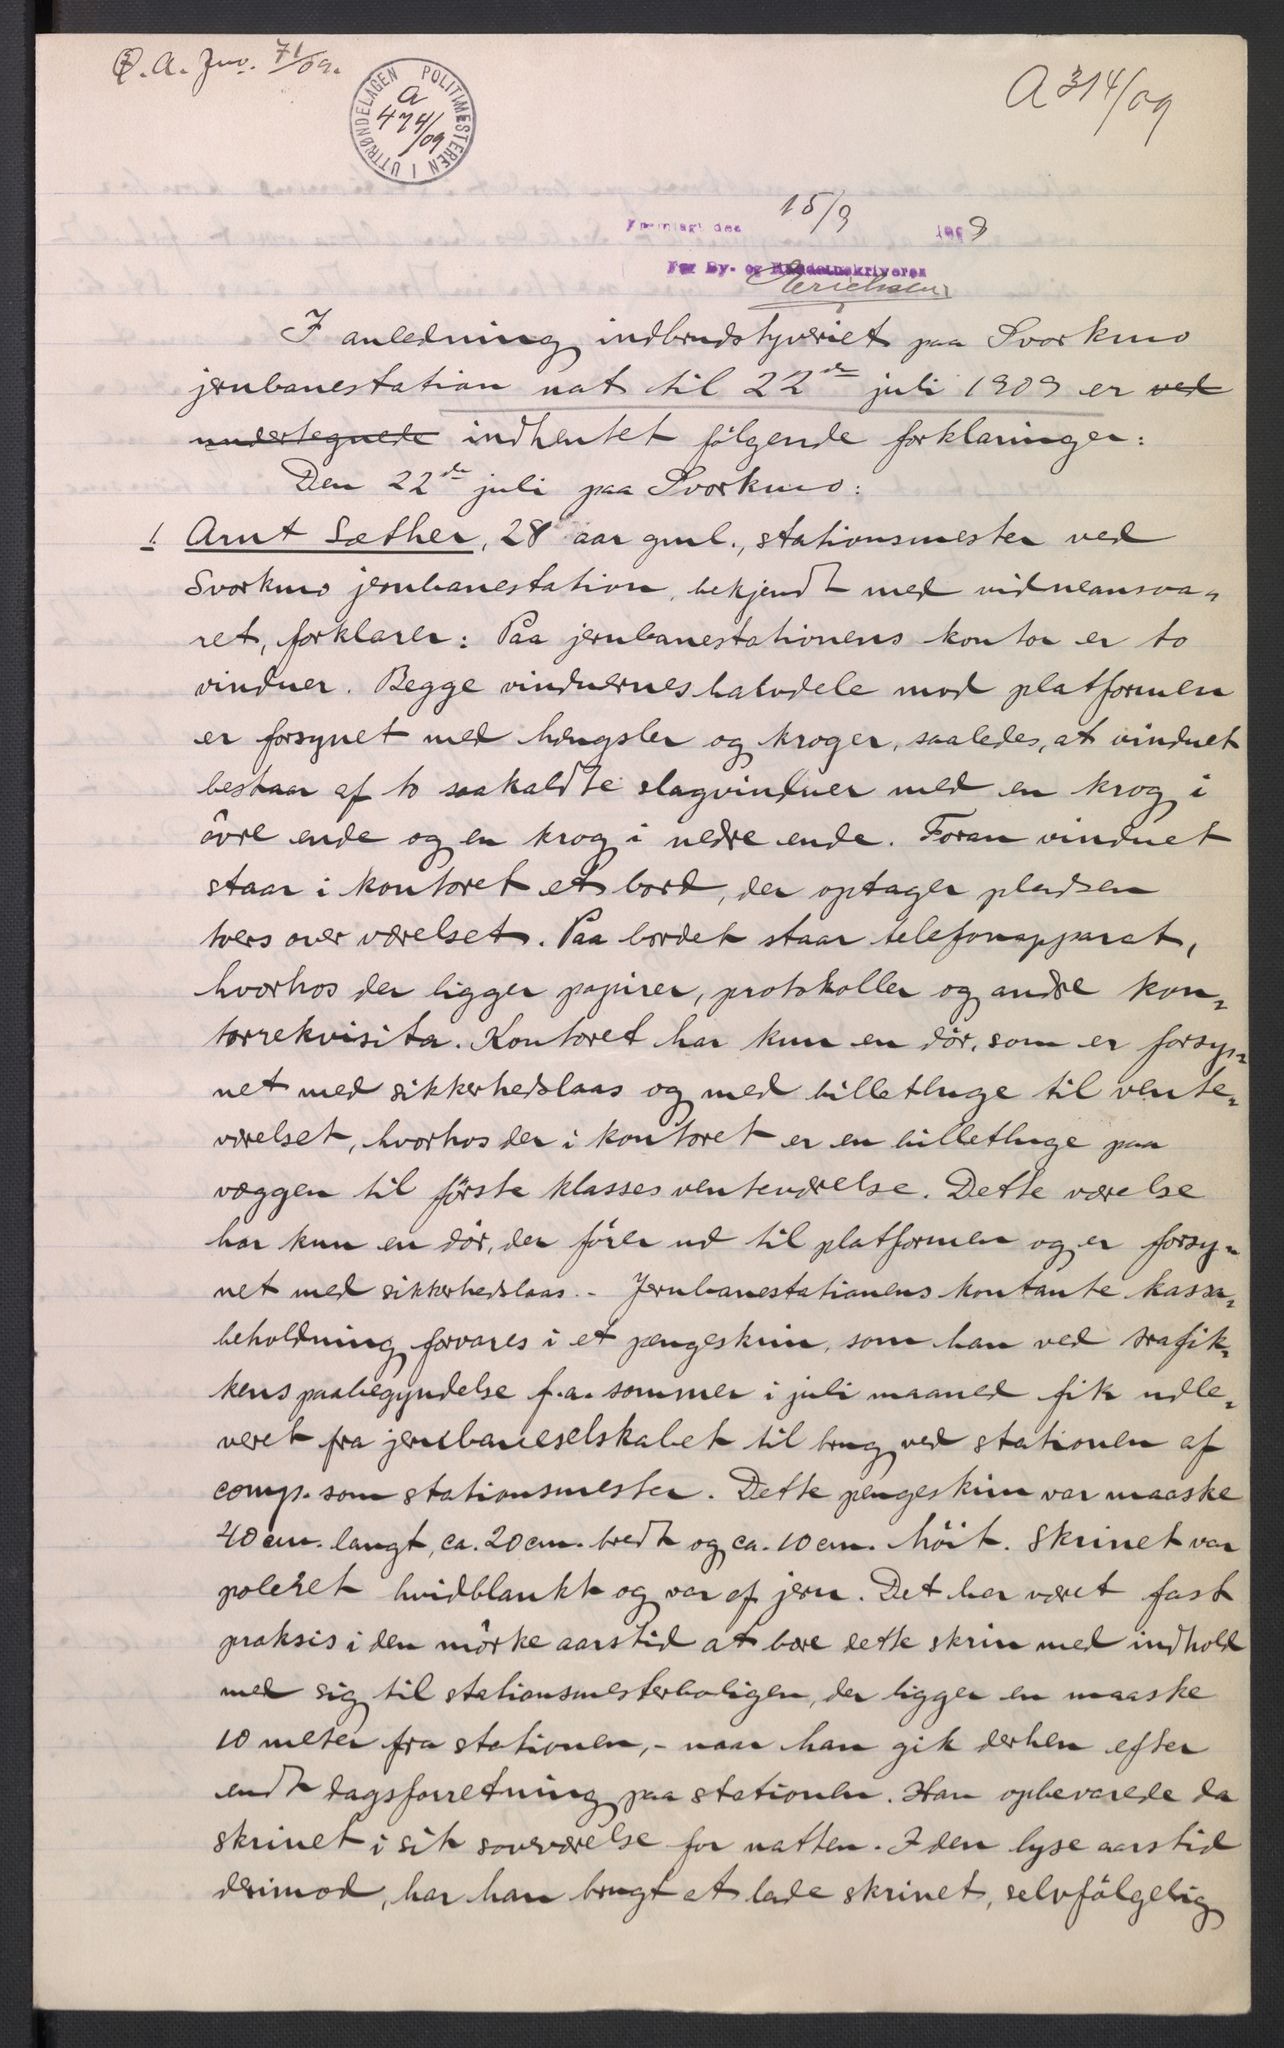 A. Jno. 71/09.
POLITIMESTEREN I UTTRØNDELAGEN
A
474/09
A 314/09
Fremlagt den 15/9 1909
For By- og Herredsskriveren
Erichsen
I anledning indbrudstyveriet paa Svorkmo
jernbanestation nat til 22de juli 1909 er ved
undertegnede indhentet følgende forklaringer:
Den 22de juli paa Svorkmo:
1. Arnt Sæther, 28 aar gml., stationsmester ved
Svorkmo jernbanestation, bekjendt med vidneansva-
ret, forklarer: Paa jernbanestationens kontor er to
vinduer. Begge vinduernes halvdele mod platformen
er forsynet med hængsler og kroger, saaledes, at vinduet
bestaar af to saakaldte slagvinduer med en krog i
øvre ende og en krog i nedre ende. Foran vinduet
staar i kontoret et bord, der optager pladsen
tvers over værelset. Paa bordet staar telefonapparat,
hvorhos der ligger papirer, protokoller og andre kon-
torrekvisita. Kontoret har kun en dør, som er forsy-
net med sikkerhedslaas og med billetluge til vente-
værelset, hvorhos der i kontoret er en billetluge paa
væggen til første klasses venteværelse. Dette værelse
har kun en dør, der fører ud til platformen og er forsy-
net med sikkerhedslaas. - Jernbanestationens kontante kassa-
beholdning forvares i et pengeskrin, som han ved trafik-
kens paabegyndelse f.a. sommer i juli maaned fik udle-
veret fra jernbaneselskabet til brug ved stationen af
comp. som stationsmester. Dette pengeskrin var maaske
40 cm. langt, ca. 20 cm. bredt og ca. 10 cm. høit. Skrinet var
poleret hvidblankt og var af jern. Det har været fast
praksis i den mørke aarstid at bære dette skrin med indhold
med sig til stationsmesterboligen, der ligger en maaske
10 meter fra stationen, - naar han gik derhen efter
endt dagsforretning paa stationen. Han opbevarede da
skrinet i sit soveværelse for natten. I den lyse aarstid
derimod, har han brugt at lade skrinet, selvfølgelig